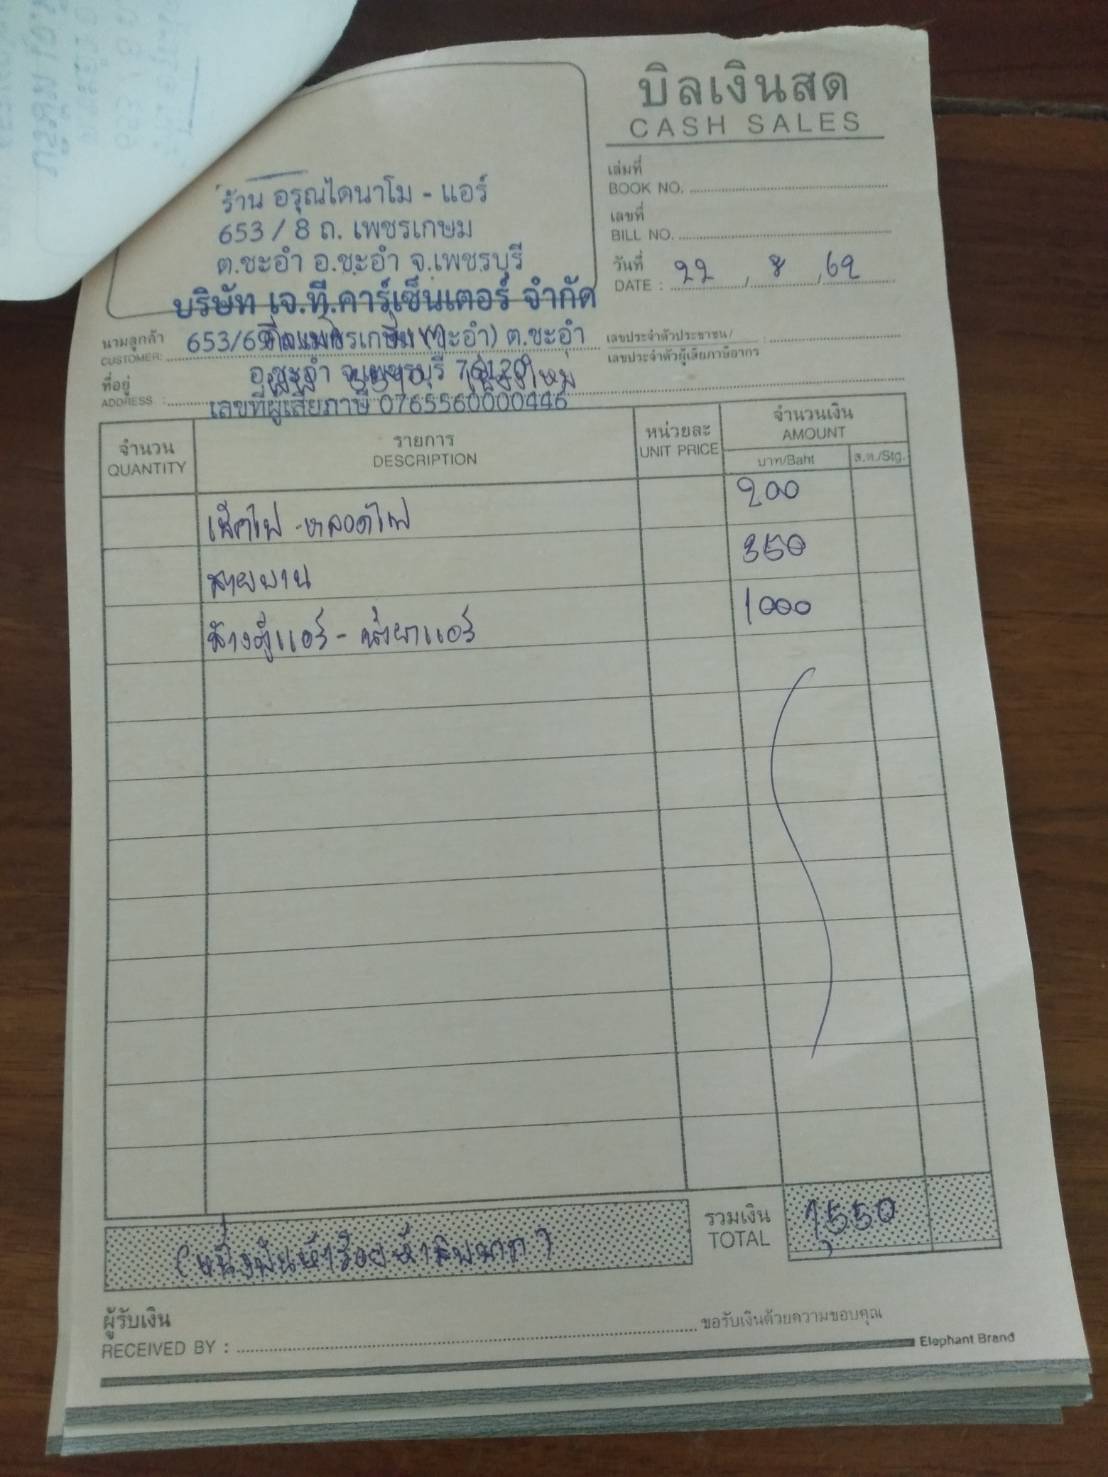 บิลเงินสด
CASH SALES
ร้าน อรุณไดนาโม - แอร์
653 / 8 ถ. เพชรเกษม
ต.ชะอำ อ.ชะอำ จ.เพชรบุรี
บริษัท เจ.ที.คาร์เซ็นเตอร์ จำกัด
เล่มที่
BOOK NO.
เลขที่
BILL NO.
วันที่
DATE : 22 / 8 / 62
นามลูกค้า
CUSTOMER:
ที่อยู่
ADDRESS :
ต.ชะอำ
อ.ชะอำ จ.เพชรบุรี 76120
เลขที่ผู้เสียภาษี 0765560000446
เลขประจำตัวประชาชน/ :
เลขประจำตัวผู้เสียภาษีอากร
จำนวน รายการ หน่วยละ จำนวนเงิน
QUANTITY DESCRIPTION UNIT PRICE AMOUNT
บาท/Baht ส.ต./Stg.
เช็คไฟ - หลอดไฟ 200
สายพาน 350
ล้างตู้แอร์ - น้ำยาแอร์ 1000
(หนึ่งพันห้าร้อยห้าสิบบาท) รวมเงิน 1,550
TOTAL
ผู้รับเงิน
RECEIVED BY : ขอรับเงินด้วยความขอบคุณ
Elephant Brand